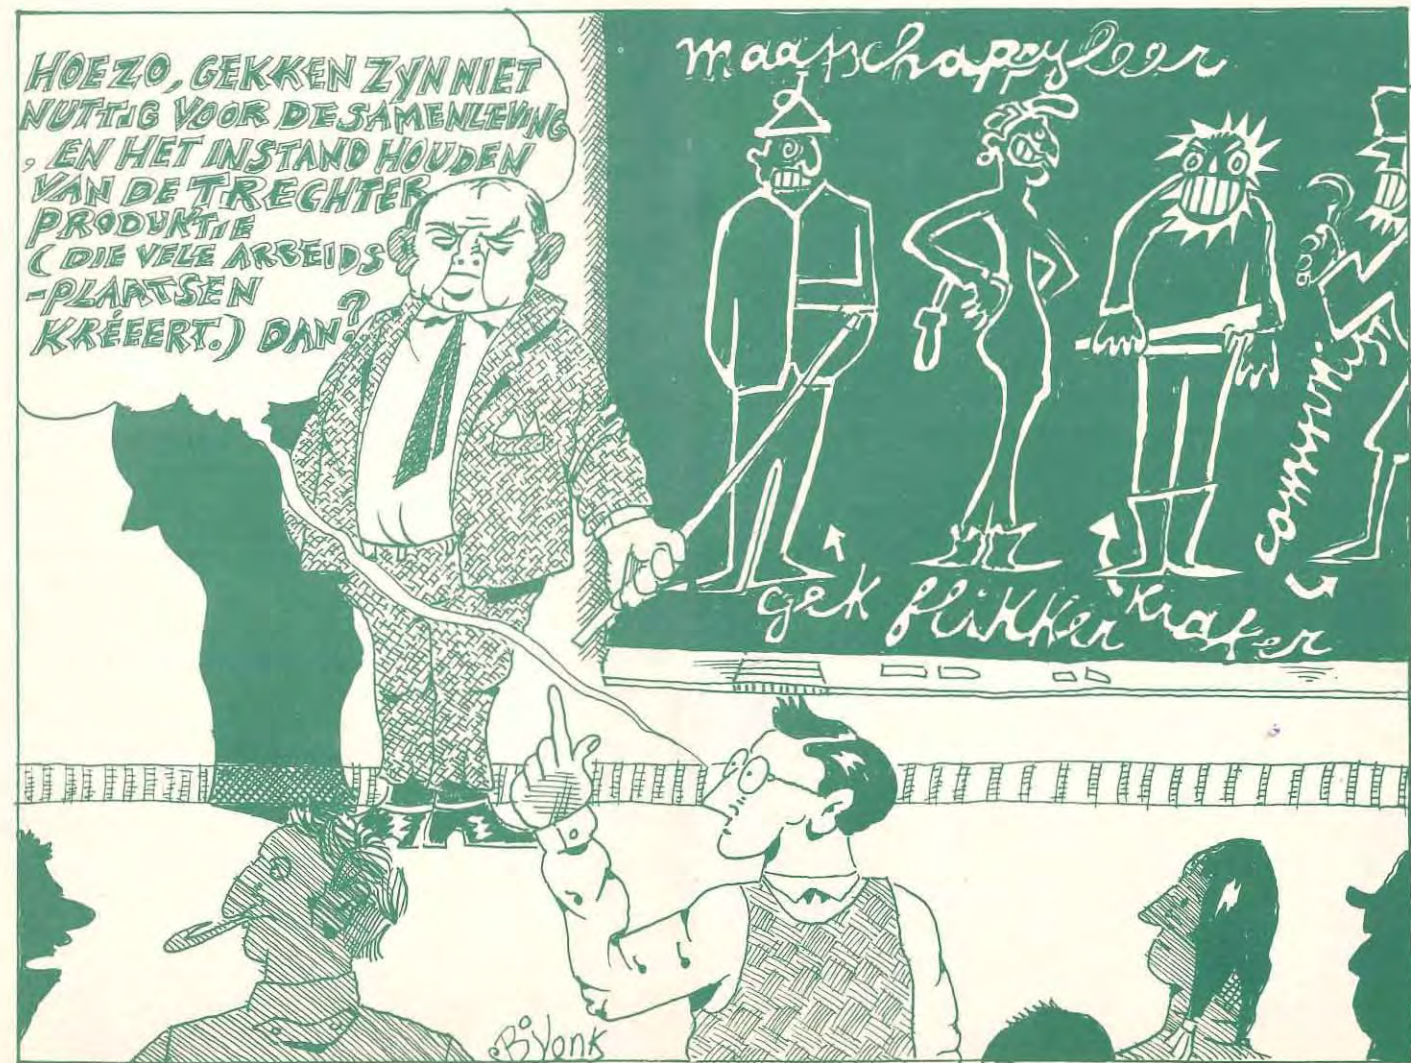 HOEZO, GEKKEN ZYN NIET
NUTTIG VOOR DE SAMENLEVING
, EN HET INSTAND HOUDEN
VAN DE TRECHTER
PRODUKTIE
( DIE VELE ARBEIDS
-PLAATSEN
KRÉEERT.) DAN?
maatschappyleer
gek flikker kraker
communist